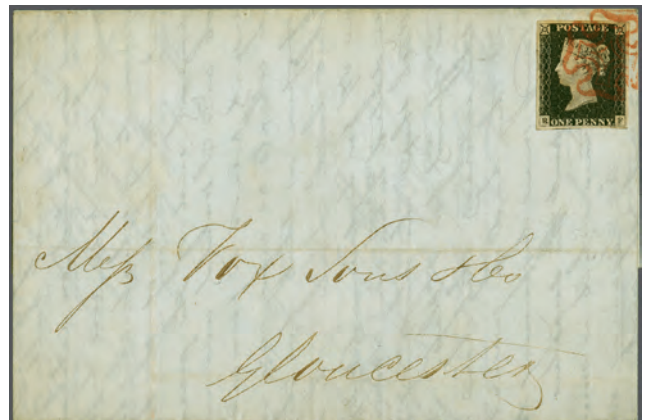 POSTAGE
ONE PENNY
Mess Fox Sons & Co
Gloucester